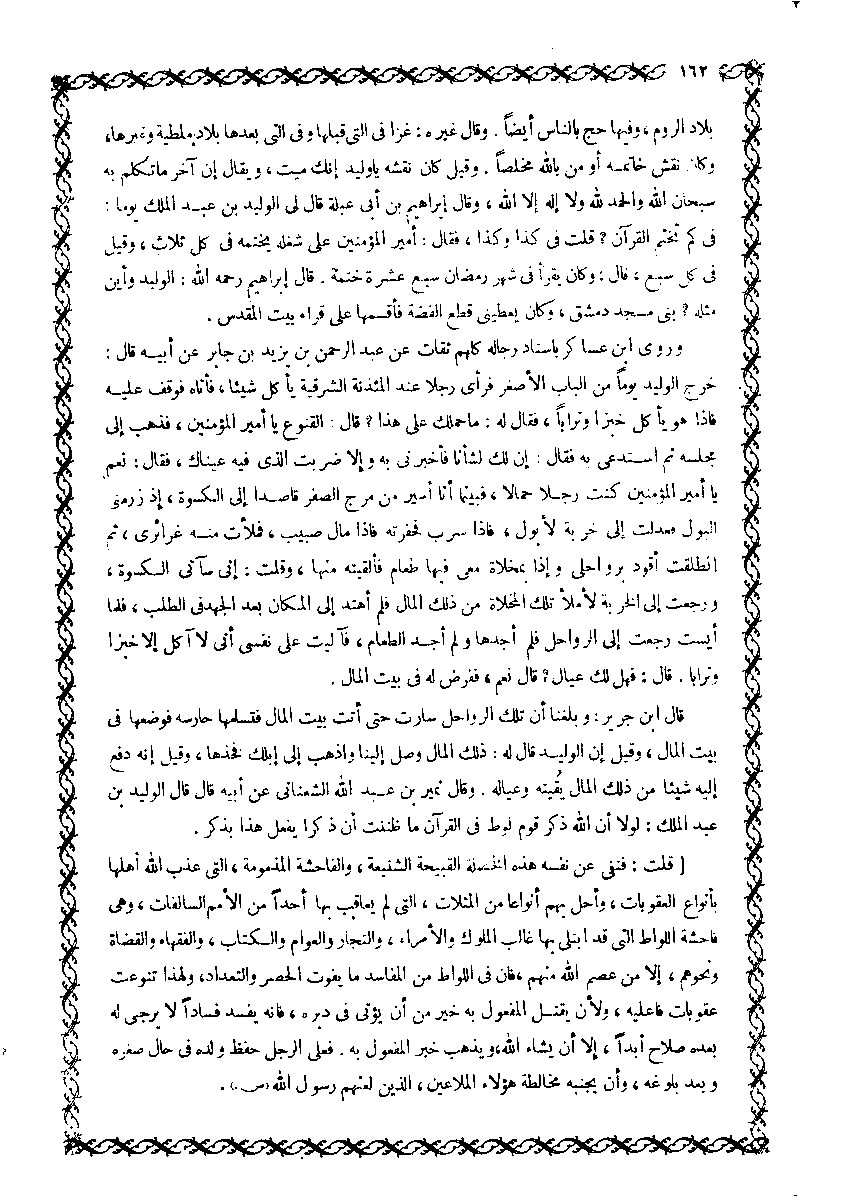 ١٦٢
بلاد الروم ، وفيها حج بالناس أيضاً . وقال غيره : غزا فى التى قبلها وفى التى بعدها بلاد ملطية وغيرها،
وكان نقش خاتمه أو من بالله مخلصاً . وقيل كان نقشه ياوليد إنك ميت ، ويقال إن آخر ماتكلم به
سبحان الله والحمد لله ولا إله إلا الله ، وقال إبراهيم بن أبى عبلة قال لى الوليد بن عبد الملك يوما :
فى كم تختم القرآن ؟ قلت فى كذا وكذا ، فقال : أمير المؤمنين على شغله يختمه فى كل ثلاث ، وقيل
فى كل سبع ، قال : وكان يقرأ فى شهر رمضان سبع عشرة ختمة . قال إبراهيم رحمه الله : الوليد وأين
مثله ؟ بنى مسجد دمشق ، وكان يعطينى قطع الفضة فأقسمها على قراء بيت المقدس .
وروى ابن عساكر باسناد رجاله كلهم ثقات عن عبد الرحمن بن يزيد بن جابر عن أبيه قال :
خرج الوليد يوماً من الباب الأصغر فرأى رجلا عند المئذنة الشرقية يأكل شيئا ، فأتاه فوقف عليه
فاذا هو يأكل خبزا وتراباً ، فقال له : ماحملك على هذا ؟ قال : القنوع يا أمير المؤمنين ، فذهب إلى
مجلسه ثم استدعى به فقال : إن لك لشأنا فأخبرنى به وإلا ضربت الذى فيه عيناك ، فقال : نعم
يا أمير المؤمنين كنت رجلا حمالا ، فبينما أنا أسير من مرج الصفر قاصدا إلى الكسوة ، إذ زرمنى
البول فعدلت إلى خربة لأبول ، فاذا سرب فحفرته فاذا مال صبيب ، فملأت منه غرائرى ، ثم
انطلقت أقود برواحلى وإذا بمخلاة معى فيها طعام فألقيته منها ، وقلت : إنى سآتى الكسوة ،
ورجعت إلى الخربة لأملأ تلك المخلاة من ذلك المال فلم أهتد إلى المكان بعد الجهد فى الطلب ، فلما
أيست رجعت إلى الرواحل فلم أجدها ولم أجد الطعام ، فآليت على نفسى أنى لا آكل إلا خبزا
وترابا . قال : فهل لك عيال ؟ قال نعم ، ففرض له فى بيت المال .
قال ابن جرير : وبلغنا أن تلك الرواحل سارت حتى أتت بيت المال فتسلمها حارسه فوضعها فى
بيت المال ، وقيل إن الوليد قال له : ذلك المال وصل إلينا واذهب إلى إبلك فخذها ، وقيل إنه دفع
إليه شيئا من ذلك المال يُقيته وعياله . وقال نمير بن عبد الله الشعنانى عن أبيه قال قال الوليد بن
عبد الملك : لولا أن الله ذكر قوم لوط فى القرآن ما ظننت أن ذكرا يفعل هذا بذكر .
[ قلت : فنفى عن نفسه هذه الخصلة القبيحة الشنيعة ، والفاحشة المذمومة ، التى عذب الله أهلها
بأنواع العقوبات ، وأحل بهم أنواعا من المثلات ، التى لم يعاقب بها أحداً من الأمم السالفات ، وهى
فاحشة اللواط التى قد ابتلى بها غالب الملوك والأمراء ، والتجار والعوام والكتاب ، والفقهاء والقضاة
ونحوهم ، إلا من عصم الله منهم ، فان فى اللواط من المفاسد ما يفوت الحصر والتعداد، ولهذا تنوعت
عقوبات فاعليه ، ولأن يقتل المفعول به خير من أن يؤتى فى دبره ، فانه يفسد فساداً لا يرجى له
بعده صلاح أبداً ، إلا أن يشاء الله، ويذهب خبر المفعول به . فعلى الرجل حفظ ولده فى حال صغره
وبعد بلوغه ، وأن يجنبه مخالطة هؤلاء الملاعين ، الذين لعنهم رسول الله (س) .